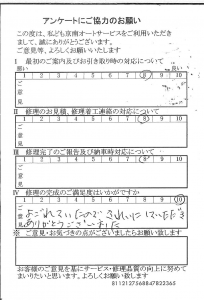 アンケートにご協力のお願い
この度は、私ども京南オートサービスをご利用いただき
まして、誠にありがとうございます。
ご意見等、よろしくお願いいたします
Ⅰ 最初のご案内及びお引き取り時の対応について
悪い 良い
1 2 3 4 5 6 7 8 9 10
ご意見
Ⅱ 修理のお見積、修理着工連絡の対応について
1 2 3 4 5 6 7 8 9 10
ご意見
Ⅲ 修理完了のご報告及び納車時対応について
1 2 3 4 5 6 7 8 9 10
ご意見
Ⅳ 修理の完成のご満足度はいかがですか
1 2 3 4 5 6 7 8 9 10
よごれていたのできれいにしていただき
ありがとうございました
※ ご意見・お気づきの点がございましたらお願い致します
お客様のご意見を基にサービス・修理品質の向上に努めて
まいりたいと思います。よろしくお願い致します